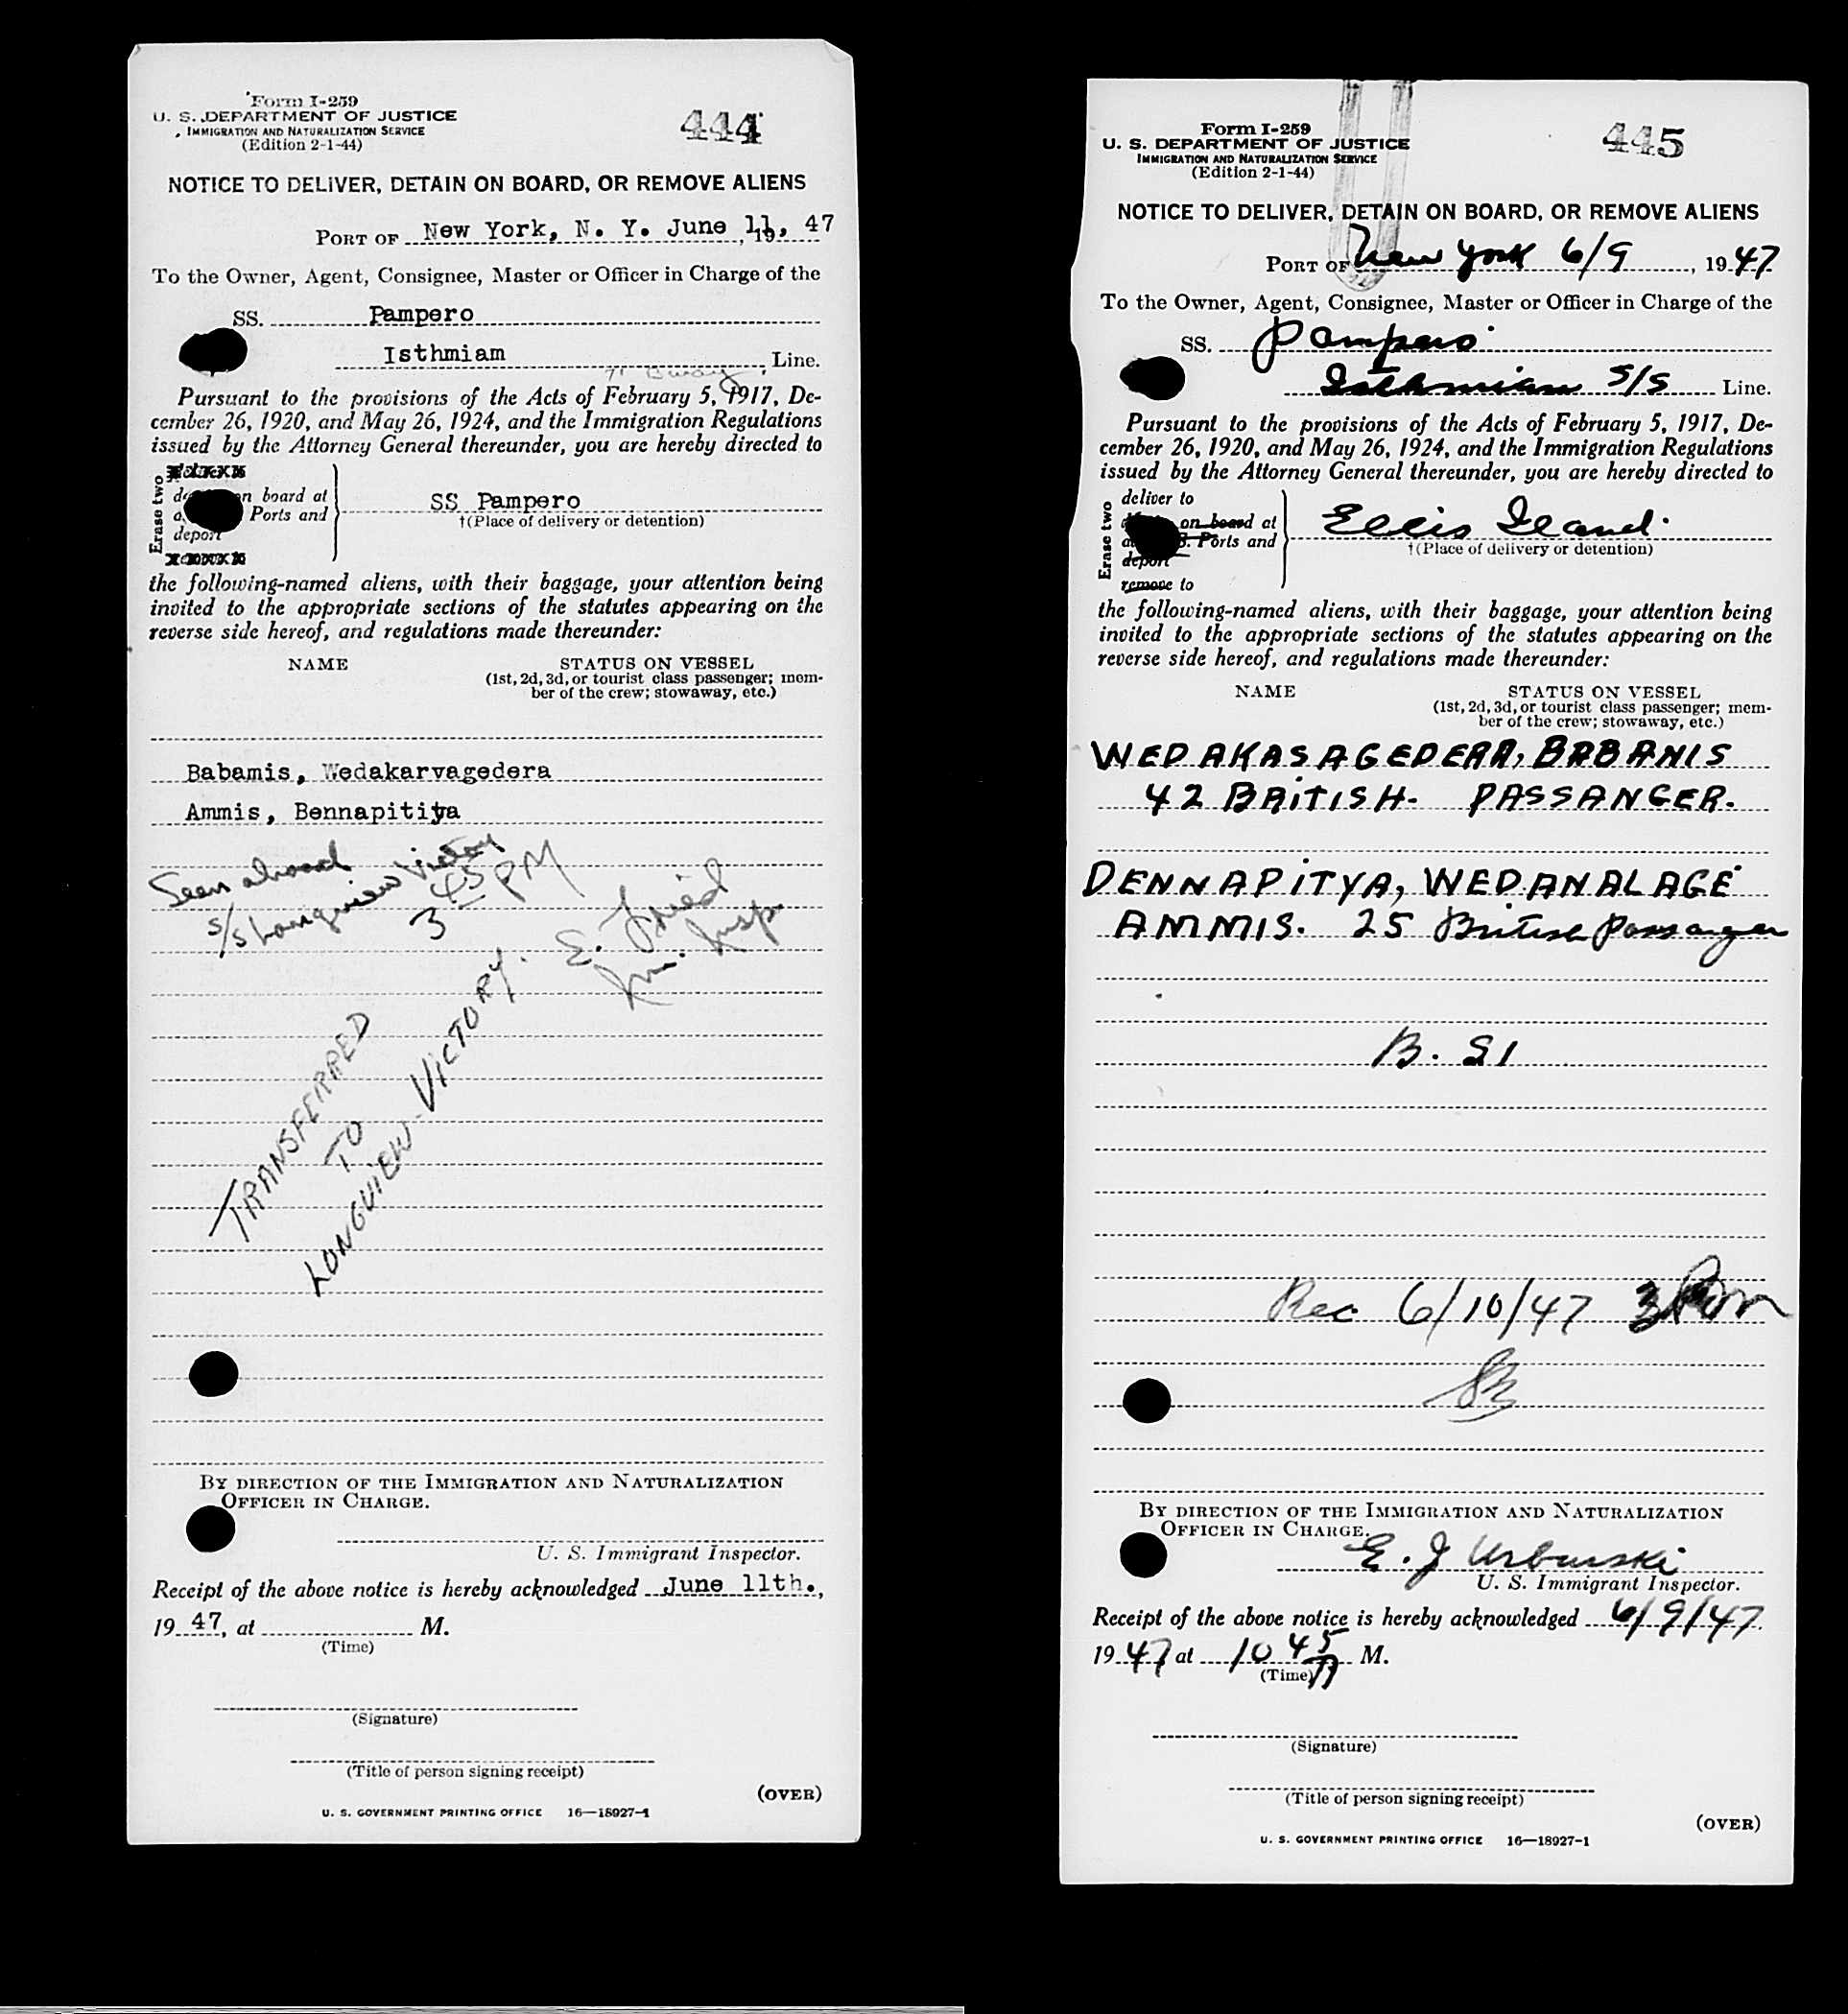 Form I-259
U. S. DEPARTMENT OF JUSTICE
IMMIGRATION AND NATURALIZATION SERVICE
(Edition 2-1-44)
444
NOTICE TO DELIVER, DETAIN ON BOARD, OR REMOVE ALIENS
PORT OF New York, N. Y. June 11, 1947
To the Owner, Agent, Consignee, Master or Officer in Charge of the
SS. Pampero
Isthmiam Line.
Pursuant to the provisions of the Acts of February 5, 1917, De-
cember 26, 1920, and May 26, 1924, and the Immigration Regulations
issued by the Attorney General thereunder, you are hereby directed to
Erase two
on board at
Ports and
deport
SS Pampero
†(Place of delivery or detention)
the following-named aliens, with their baggage, your attention being
invited to the appropriate sections of the statutes appearing on the
reverse side hereof, and regulations made thereunder:
NAME STATUS ON VESSEL
(1st, 2d, 3d, or tourist class passenger; mem-
ber of the crew; stowaway, etc.)
Babamis, Wedakarvagedera
Ammis, Bennapitiya
Seen aboard
s/s Longview Victory
3 45 PM
E. Fried
Imm. Insp.
TRANSFERRED
TO
LONGVIEW VICTORY.
BY DIRECTION OF THE IMMIGRATION AND NATURALIZATION
OFFICER IN CHARGE.
U. S. Immigrant Inspector.
Receipt of the above notice is hereby acknowledged June 11th.,
19 47, at M.
(Time)
(Signature)
(Title of person signing receipt)
(OVER)
U. S. GOVERNMENT PRINTING OFFICE 16—18927-1
Form I-259
U. S. DEPARTMENT OF JUSTICE
IMMIGRATION AND NATURALIZATION SERVICE
(Edition 2-1-44)
445
NOTICE TO DELIVER, DETAIN ON BOARD, OR REMOVE ALIENS
PORT OF New York 6/9, 1947
To the Owner, Agent, Consignee, Master or Officer in Charge of the
SS. Pampero
Isthmian S/S Line.
Pursuant to the provisions of the Acts of February 5, 1917, De-
cember 26, 1920, and May 26, 1924, and the Immigration Regulations
issued by the Attorney General thereunder, you are hereby directed to
Erase two
deliver to
on board at
Ports and
deport
remove to
Ellis Iland.
†(Place of delivery or detention)
the following-named aliens, with their baggage, your attention being
invited to the appropriate sections of the statutes appearing on the
reverse side hereof, and regulations made thereunder:
NAME STATUS ON VESSEL
(1st, 2d, 3d, or tourist class passenger; mem-
ber of the crew; stowaway, etc.)
WEDAKASAGEDERA, BABANIS
42 BRITISH. PASSANGER.
DENNAPITYA, WEDANALAGE
AMMIS. 25 British Passanger
B. SI
Rec 6/10/47
BY DIRECTION OF THE IMMIGRATION AND NATURALIZATION
OFFICER IN CHARGE.
E. J Urburski
U. S. Immigrant Inspector.
Receipt of the above notice is hereby acknowledged 6/9/47
19 47 at 10 45 A M.
(Time)
(Signature)
(Title of person signing receipt)
(OVER)
U. S. GOVERNMENT PRINTING OFFICE 16—18927-1